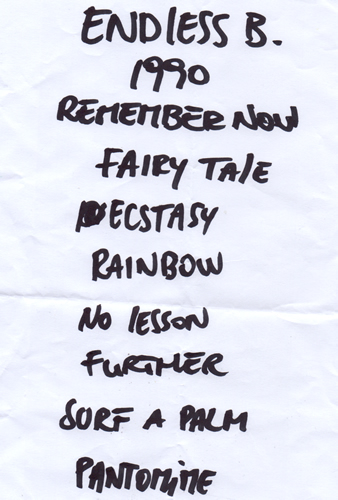 ENDLESS B.
1990
REMEMBER NOW
FAIRY TALE
ECSTASY
RAINBOW
NO LESSON
FURTHER
SURF A PALM
PANTOMIME